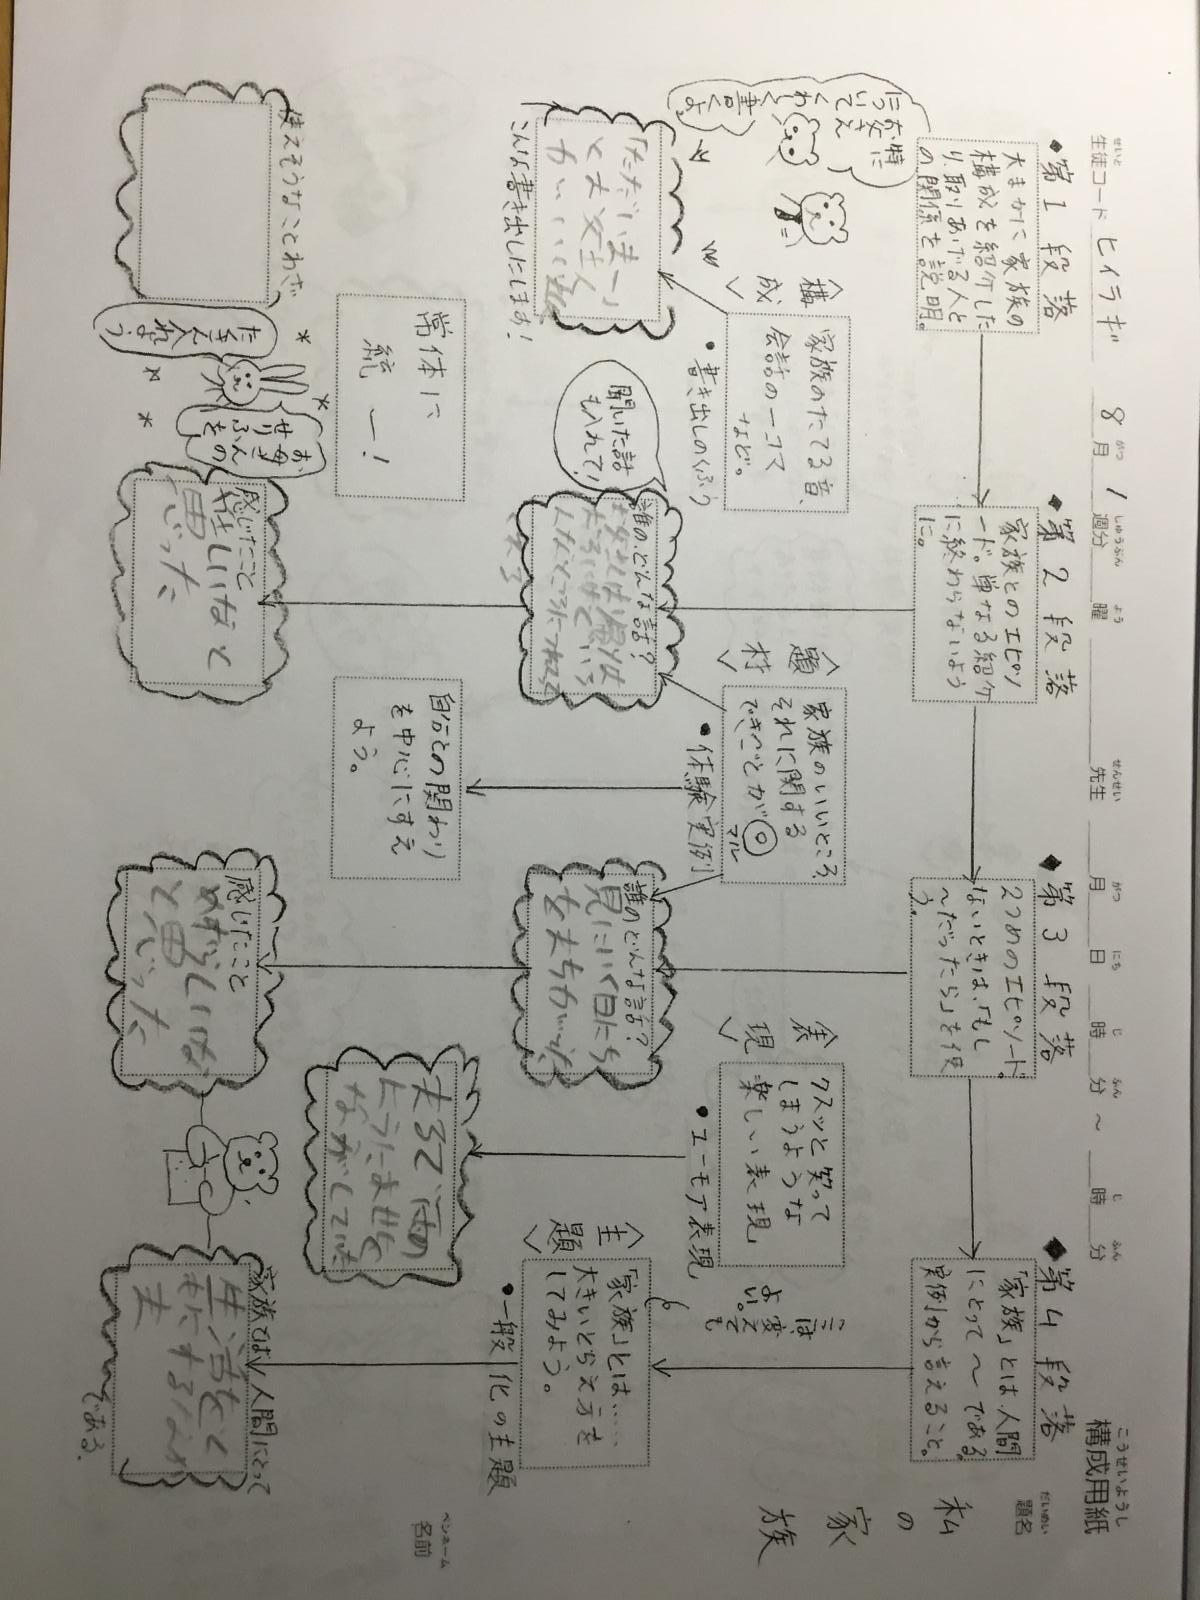 構成用紙
こうせいようし
題名
だいめい
私の家族
名前
ペンネーム
生徒コード ヒイラギ 8月 1週分 曜 先生 月 日 時 分 ～ 時 分
せいと
がつ
しゅうぶん
よう
せんせい
がつ
にち
じ
ふん
じ
ふん
◆第1段落
大まかに家族の
構成を紹介した
り、取りあげる人と
の関係を説明。
特に
お父さん
について
くわしく
書くよ
〈構成〉
家族のたてる音、
会話の一コマ
など。
・書き出しのくふう
「ただいまー」
と大
こんな書き出しにします！
常体に
統一！
使えそうなことわざ
たとえ
入れよう
お母さんの
せりふを
◆第2段落
家族とのエピソ
ード。単なる紹介
に終わらないよう
に。
〈題材〉
家族のいいところ、
それに関する
できごとが◎
マル
・体験実例
聞いた話
も入れて！
誰の、どんな話？
自分との関わり
を中心にすえ
よう。
感じたこと
怪しいなと
思った
◆第3段落
2つめのエピソード。
ないときは、「もし
～だったら」を使
う。
〈表現〉
クスッと笑って
しまうような
楽しい表現
・ユーモア表現
誰のどんな話？
見にいく日にち
をまちがった
まるで、雨の
ように
ながして
感じたこと
めずらしいな
と思った
◆第4段落
「家族」とは、人間
にとって～である。
実例から言えること。
ここは
変えても
よい。
〈主題〉
「家族」とは……
大きいとらえ方を
してみよう。
・一般化の主題
家族とは、人間にとって
生活を
である。